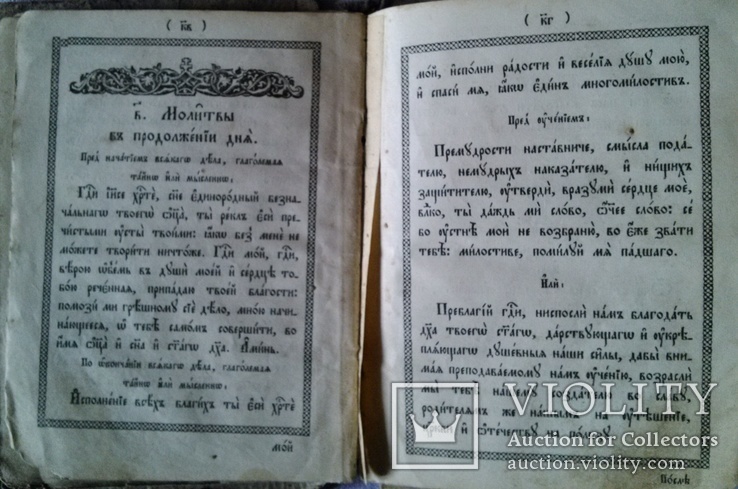 ( к҃в )
в҃. Моли̑твы
въ продолже́нїи днѧ̀.
Пред̾ нача́тїемъ всѧ́кагѡ дѣ́ла, глаго́лемаѧ
та́йнѡ и҆лѝ мы́сленнѡ,
Гдⷭ҇и і҆и҃се хрⷭ҇тѐ, сн҃е є҆диноро́дный безна-
ча́льнагѡ твоегѡ̀ ѻ҆ц҃а̀, ты̀ ре́клъ є҆сѝ пре-
чи́стыми ᲂу҆сты̑ твои́ми: ꙗ҆́кѡ без̾ менє̀ не
мо́жете твори́ти ничто́же. Гдⷭ҇и мо́й, гдⷭ҇и,
вѣ́рою ѡ҆б̾е́мъ въ дꙋшѝ мое́й и҆ се́рдцѣ то-
бо́ю рече́ннаѧ, припа́даю твое́й бла́гости:
помозѝ ми грѣ́шномꙋ сїѐ дѣ́ло, мно́ю начи-
на́ющеесѧ, ѡ҆ тебѣ̀ само́мъ соверши́ти, во
и҆́мѧ ѻ҆ц҃а̀ и҆ сн҃а и҆ ст҃а́гѡ дх҃а. А҆ми́нь.
По ѡ҆конча́нїи всѧ́кагѡ дѣ́ла, глаго́лемаѧ
та́йнѡ и҆лѝ мы́сленнѡ,
И҆сполне́нїе всѣ́хъ благи́хъ ты̀ є҆сѝ хрⷭ҇тѐ
мо́й
( к҃г )
мо́й, и҆спо́лни ра́дости и҆ весе́лїѧ дꙋ́шꙋ мою̀,
и҆ спасѝ мѧ̀, ꙗ҆́кѡ є҆ди́нъ многоми́лостивъ.
Пред̾ ᲂу҆че́нїемъ:
Премꙋ́дрости наста́вниче, смы́сла пода́-
телю, немꙋ́дрыхъ наказа́телю, и҆ ни́щихъ
защи́тителю, ᲂу҆твердѝ, вразꙋмѝ се́рдце моѐ,
влⷣко, ты̀ да́ждь мѝ сло́во, ѻ҆́ч҃ее сло́во: се́ бо
ᲂу҆стнѣ̀ мои̑ не возбраню̀, во є҆́же зва́ти
тебѣ̀: ми́лостиве, поми́лꙋй мѧ̀ па́дшаго.
И҆лѝ:
Преблагі́й гдⷭ҇и, ниспослѝ на́мъ благода́ть
дх҃а твоегѡ̀ ст҃а́гѡ, да́рствꙋющагѡ и҆ ᲂу҆крѣ-
плѧ́ющагѡ душє́вныѧ на́ши си̑лы, да́бы вни-
ма́ѧ преподава́емомꙋ на́мъ ᲂу҆че́нїю, возрослѝ
мы̀ тебѣ̀ на́шемꙋ созда́телю во сла́вꙋ,
роди́телємъ же на́шымъ на ᲂу҆тѣше́нїе,
и҆ ѻ҆те́чествꙋ на по́льзꙋ.
По́слѣ
VIOLITY
Auction for Collectors
auction.violity.com